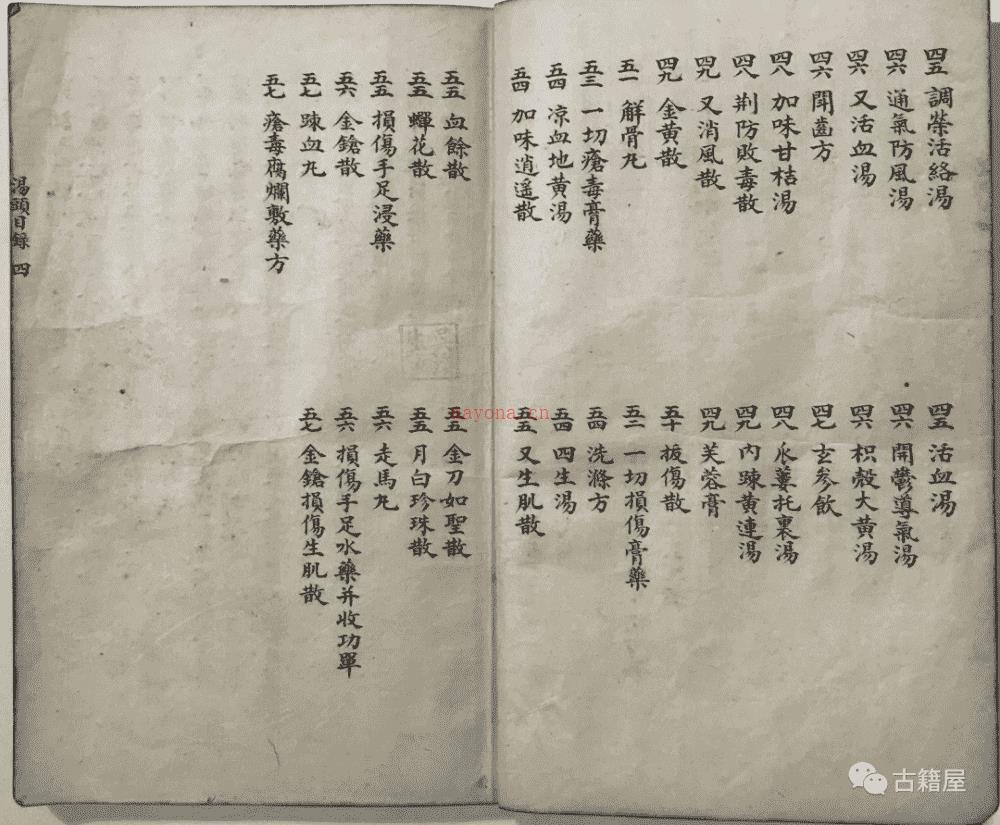 四五 調榮活絡湯 四五 活血湯
四六 通氣防風湯 四六 開鬱導氣湯
四六 又活血湯 四六 枳殼大黃湯
四六 開齒方 四七 玄參飲
四八 加味甘桔湯 四八 托裏湯
四八 荆防敗毒散 四九 內踈黃連湯
四九 又消風散 四九 芙蓉膏
四九 金黃散 五十 拔傷散
五一 解骨丸 五二 一切損傷膏藥
五三 一切瘡毒膏藥 五四 洗滌方
五四 凉血地黃湯 五四 四生湯
五四 加味逍遥散 五五 又生肌散
五五 血餘散 五五 金刀如聖散
五五 蟬花散 五五 月白珍珠散
五五 損傷手足浸藥 五六 走馬丸
五六 金鎗散 五六 損傷手足水藥并收功單
五七 踈血丸 五七 金鎗損傷生肌散
五七 瘡毒腐爛敷藥方
湯頭目録 四
nayona.cn
古籍屋